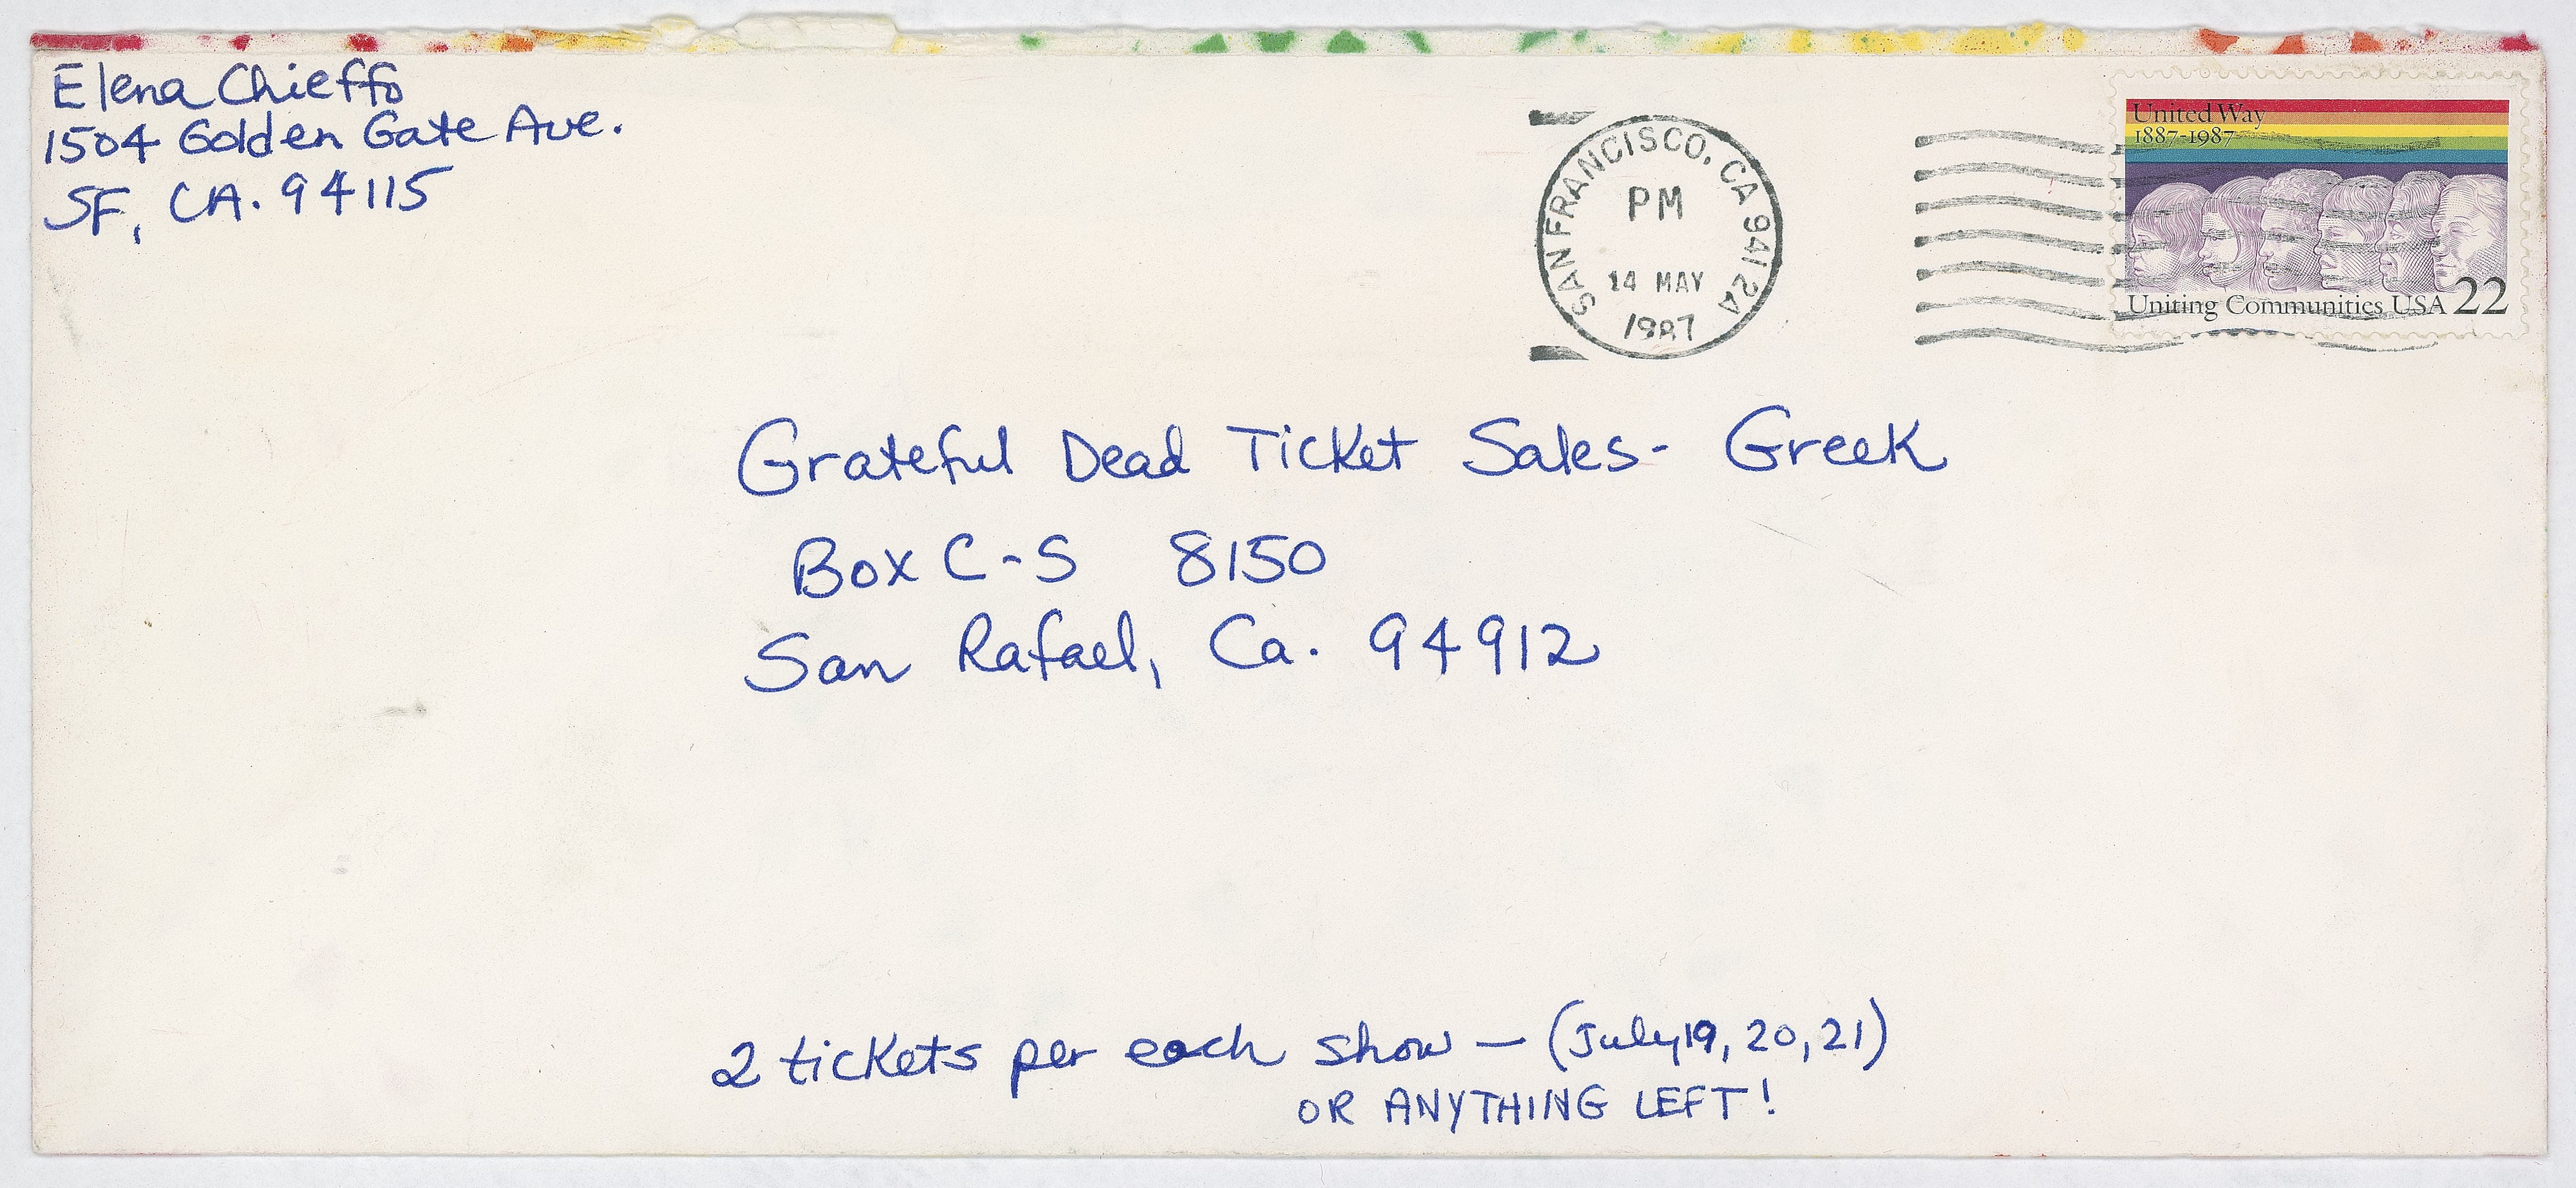 Elena Chieffo
1504 Golden Gate Ave.
SF, CA. 94115
SAN FRANCISCO, CA 941 2A
PM
14 MAY
1987
United Way
1887-1987
Uniting Communities USA 22
Grateful Dead Ticket Sales- Greek
Box C-S 8150
San Rafael, Ca. 94912
2 tickets per each show — (July 19, 20, 21)
OR ANYTHING LEFT!